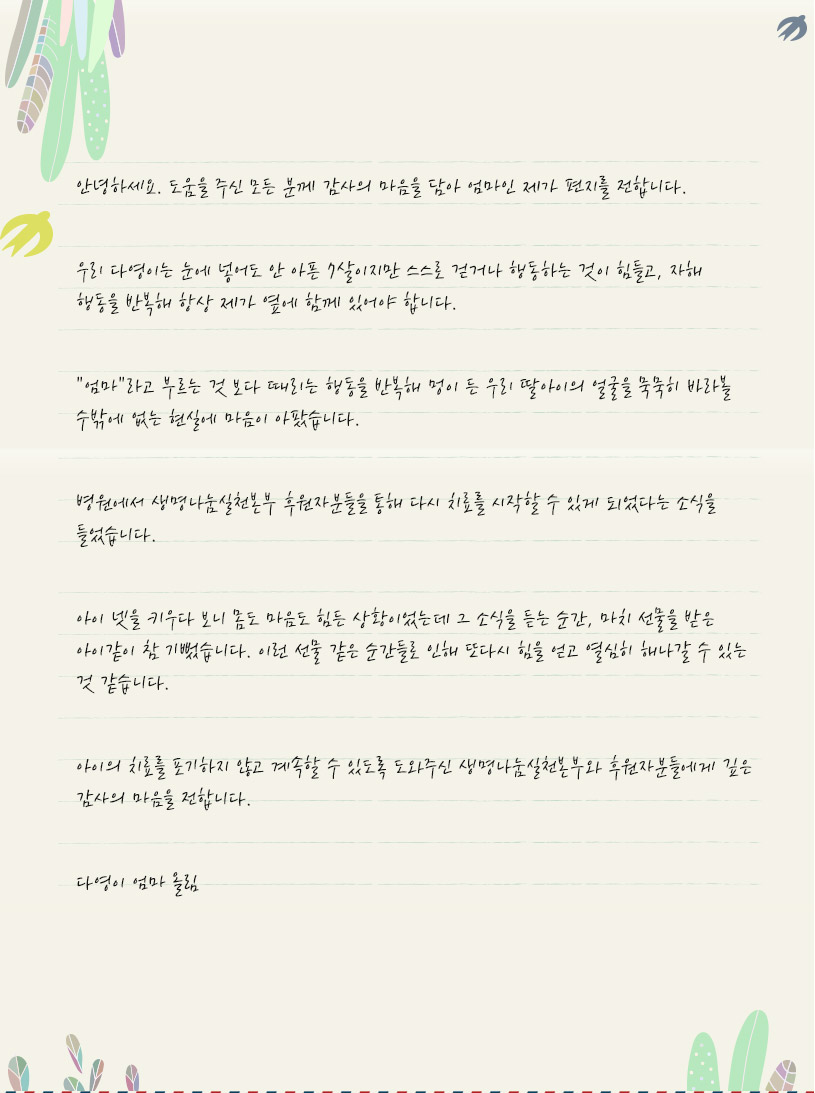 안녕하세요. 도움을 주신 모든 분께 감사의 마음을 담아 엄마인 제가 편지를 전합니다.
우리 다영이는 눈에 넣어도 안 아픈 7살이지만 스스로 걷거나 행동하는 것이 힘들고, 자해
행동을 반복해 항상 제가 옆에 함께 있어야 합니다.
"엄마"라고 부르는 것 보다 때리는 행동을 반복해 멍이 든 우리 딸아이의 얼굴을 묵묵히 바라볼
수밖에 없는 현실에 마음이 아팠습니다.
병원에서 생명나눔실천본부 후원자분들을 통해 다시 치료를 시작할 수 있게 되었다는 소식을
들었습니다.
아이 넷을 키우다 보니 몸도 마음도 힘든 상황이었는데 그 소식을 듣는 순간, 마치 선물을 받은
아이같이 참 기뻤습니다. 이런 선물 같은 순간들로 인해 또다시 힘을 얻고 열심히 해나갈 수 있는
것 같습니다.
아이의 치료를 포기하지 않고 계속할 수 있도록 도와주신 생명나눔실천본부와 후원자분들에게 깊은
감사의 마음을 전합니다.
다영이 엄마 올림